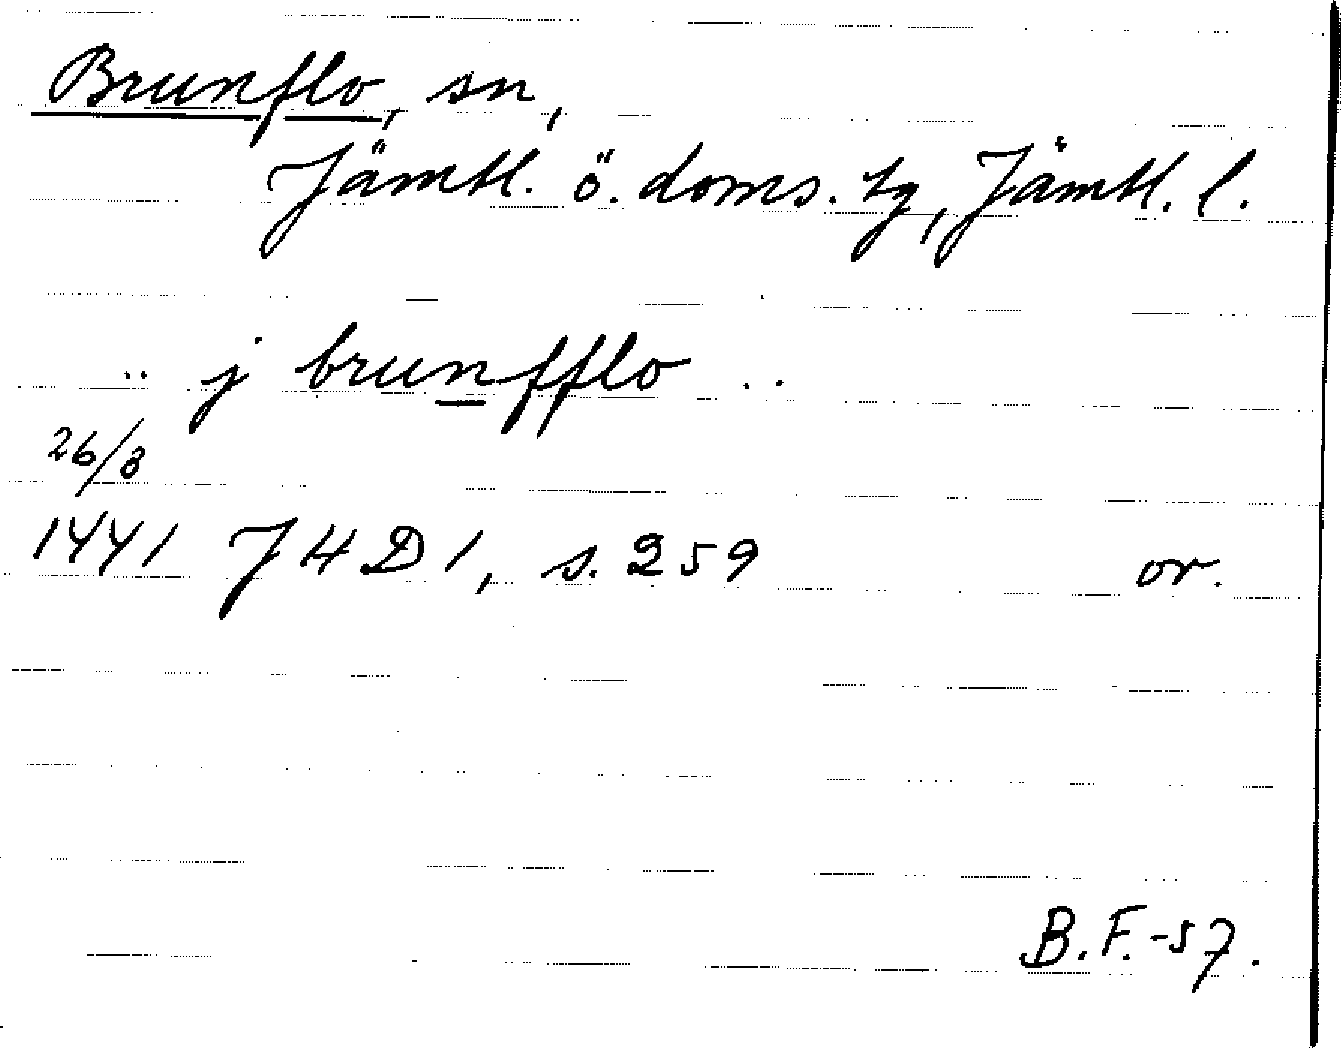 Brunflo, sn,
Jämtl. ö. doms. tg, Jämtl. l.
.. j brunfflo ..
26/3
1441 JHD 1, s. 259 or.
B.F.-57.